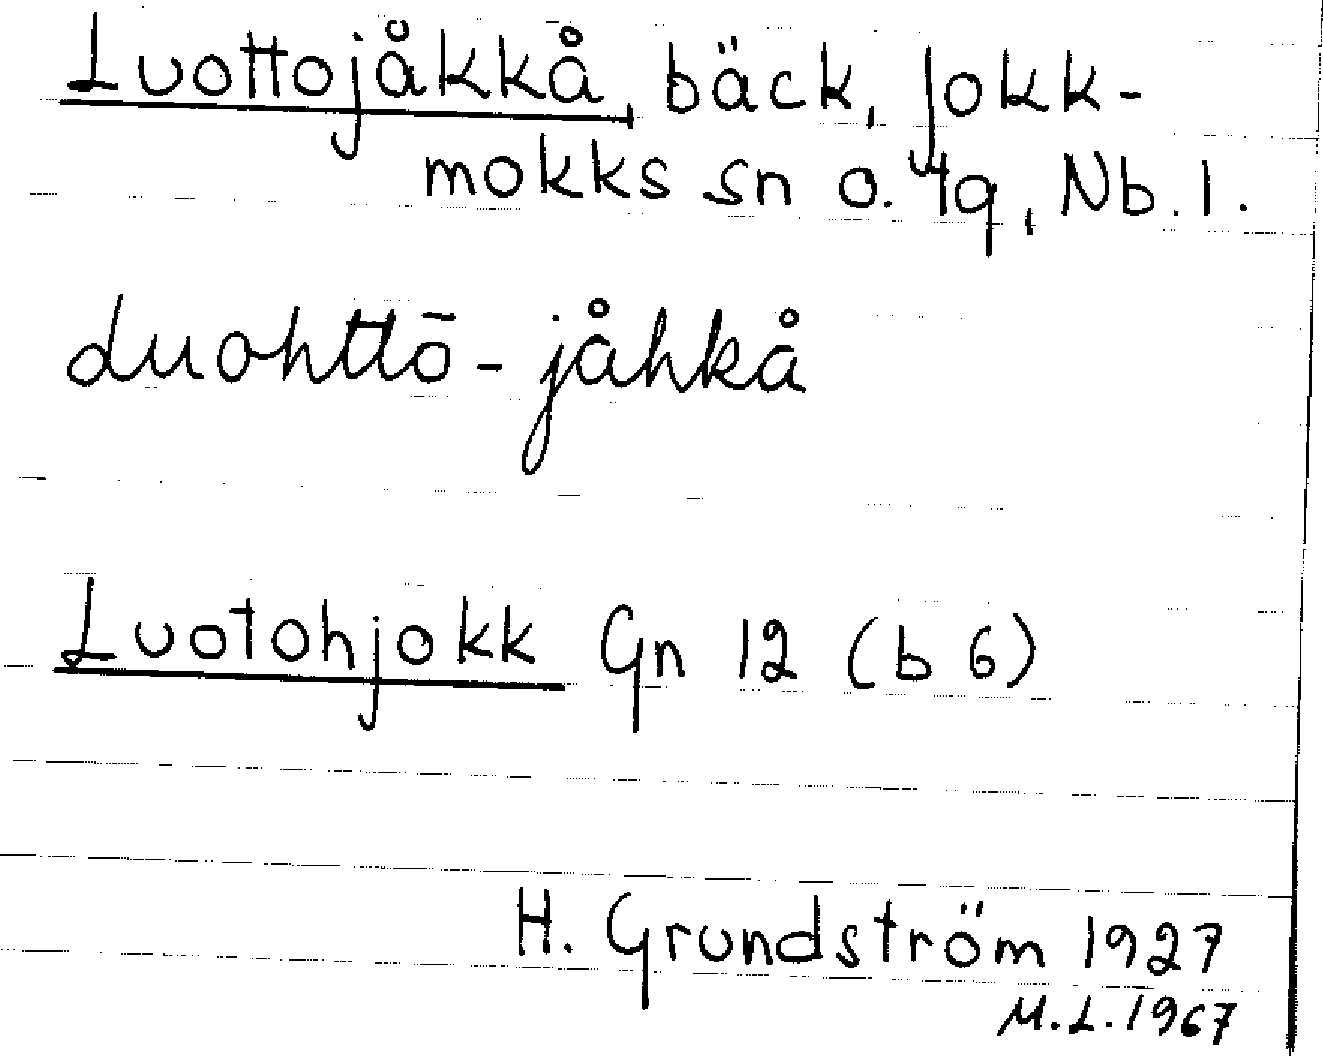 Luottojåkkå, bäck, Jokk-
mokks sn o. tg, Nb. l.
duohttō-jåhkå
Luotohjokk Gn 12 (b 6)
H. Grundström 1927
M.L. 1967